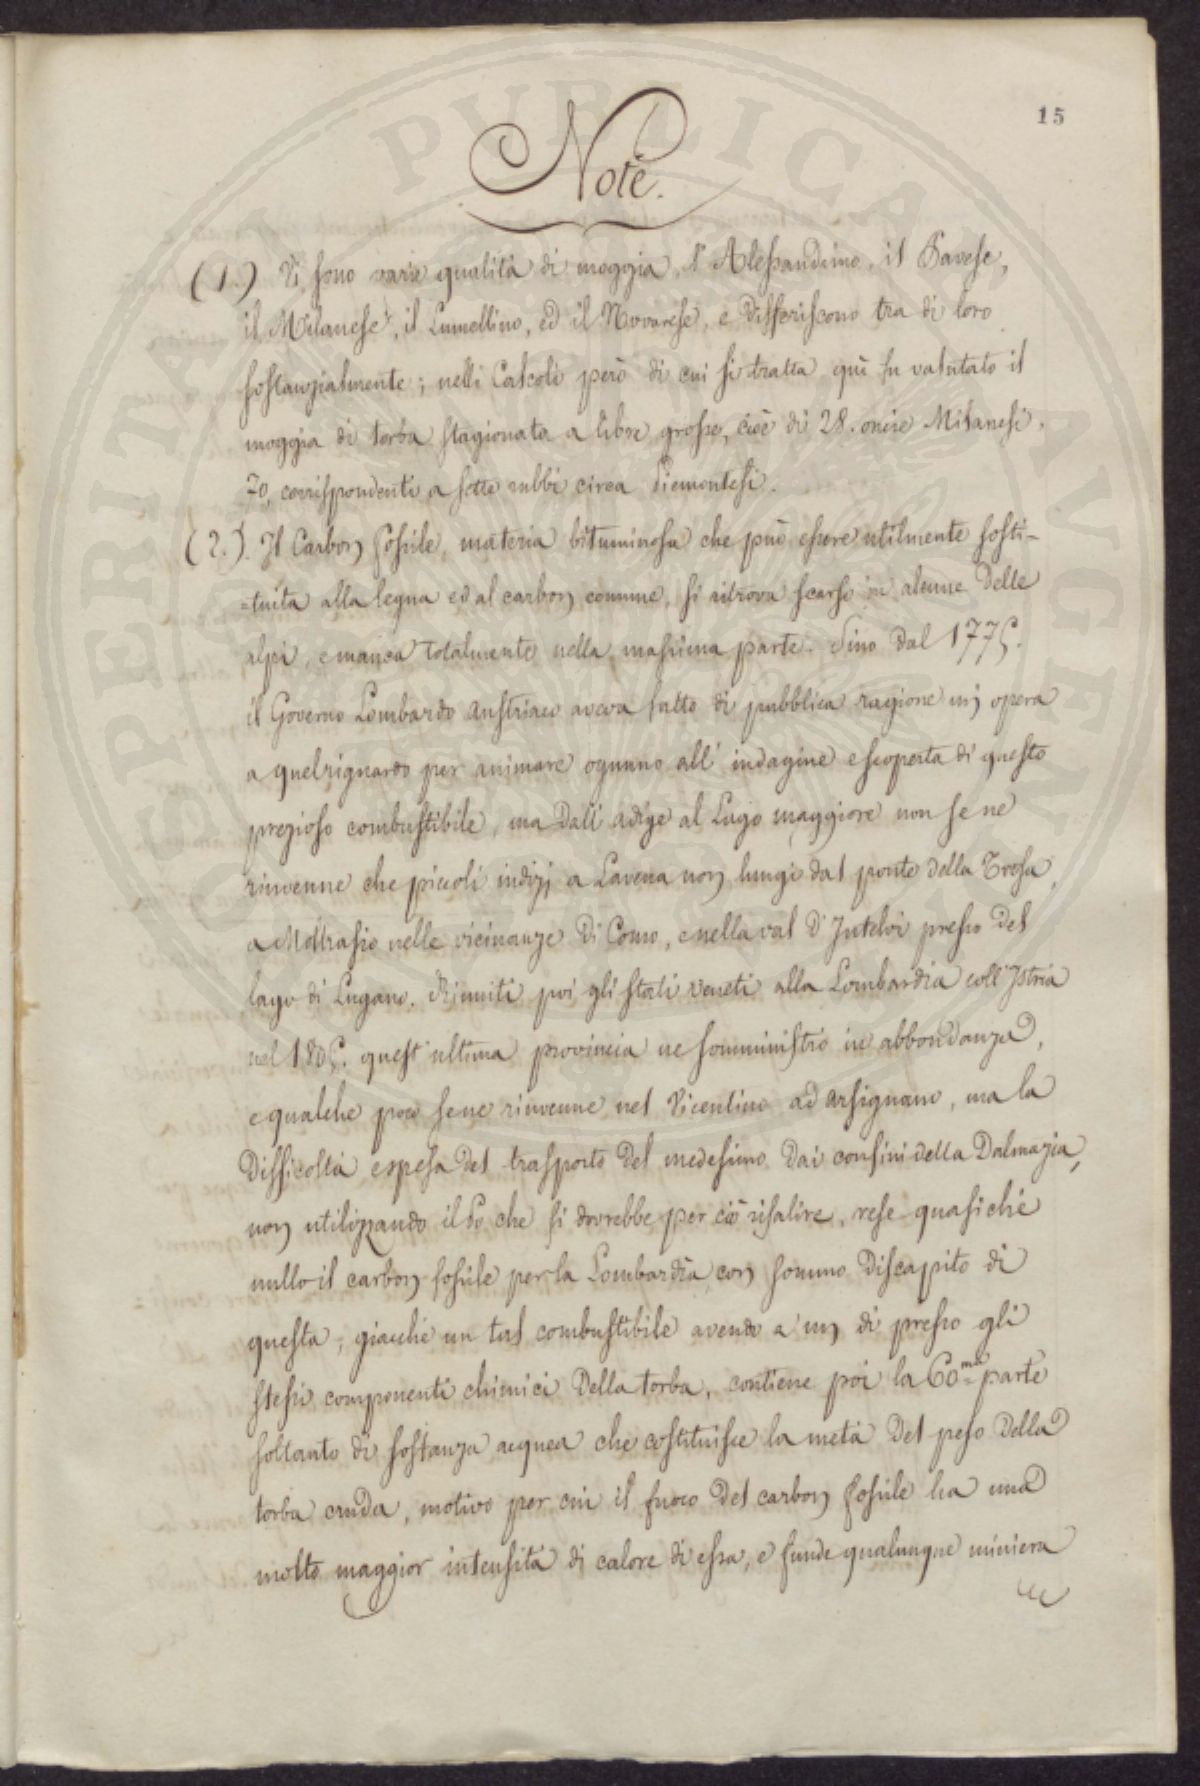 15
Note.
(1.) Vi sono varie qualità di moggia, l'Alessandrino, il Pavese,
il Milanese, il Lumellino, ed il Novarese, e differiscono tra di loro
sostanzialmente; nelli Calcoli però di cui si tratta quì fu valutato il
moggia di torba stagionata a libre grosse, cioè di 28. oncie Milanesi,
70, corrispondenti a sette rubbi circa Piemontesi.
(2.). Il Carbon fossile, materia bituminosa che può essere utilmente sosti-
=tuita alla legna ed al carbon comune, si ritrova scarso in alcune delle
alpi, e manca totalmente nella massima parte. Sino dal 1775.
il Governo Lombardo Austriaco aveva fatto di pubblica ragione un opera
a quel riguardo per animare ognuno all' indagine e scoperta di questo
prezioso combustibile, ma dall' adige al Lago maggiore non se ne
rinvenne che piccoli indizj a Lavena non lungi dal ponte della Tresa,
a Moltrasio nelle vicinanze di Como, e nella val d'Intelvi presso del
lago di Lugano. Riuniti poi gli stati veneti alla Lombardia coll'Istria
nel 1805. quest'ultima provincia ne somministrò in abbondanza,
e qualche poco se ne rinvenne nel Vicentino ad arsignano, ma la
difficoltà e spesa del trasporto del medesimo dai confini della Dalmazia,
non utilizzando il Po che si dovrebbe per ciò risalire, rese quasichè
nullo il carbon fossile per la Lombardia con sommo discapito di
questa, giacchè un tal combustibile avendo a un di presso gli
stessi componenti chimici della torba, contiene poi la 60.ma parte
soltanto di sostanza acquea che costituisce la metà del peso della
torba cruda, motivo per cui il fuoco del carbon fossile ha una
molto maggior intensità di calore di essa, e funde qualunque miniera
PERITATI PUBLICAE AUGEN